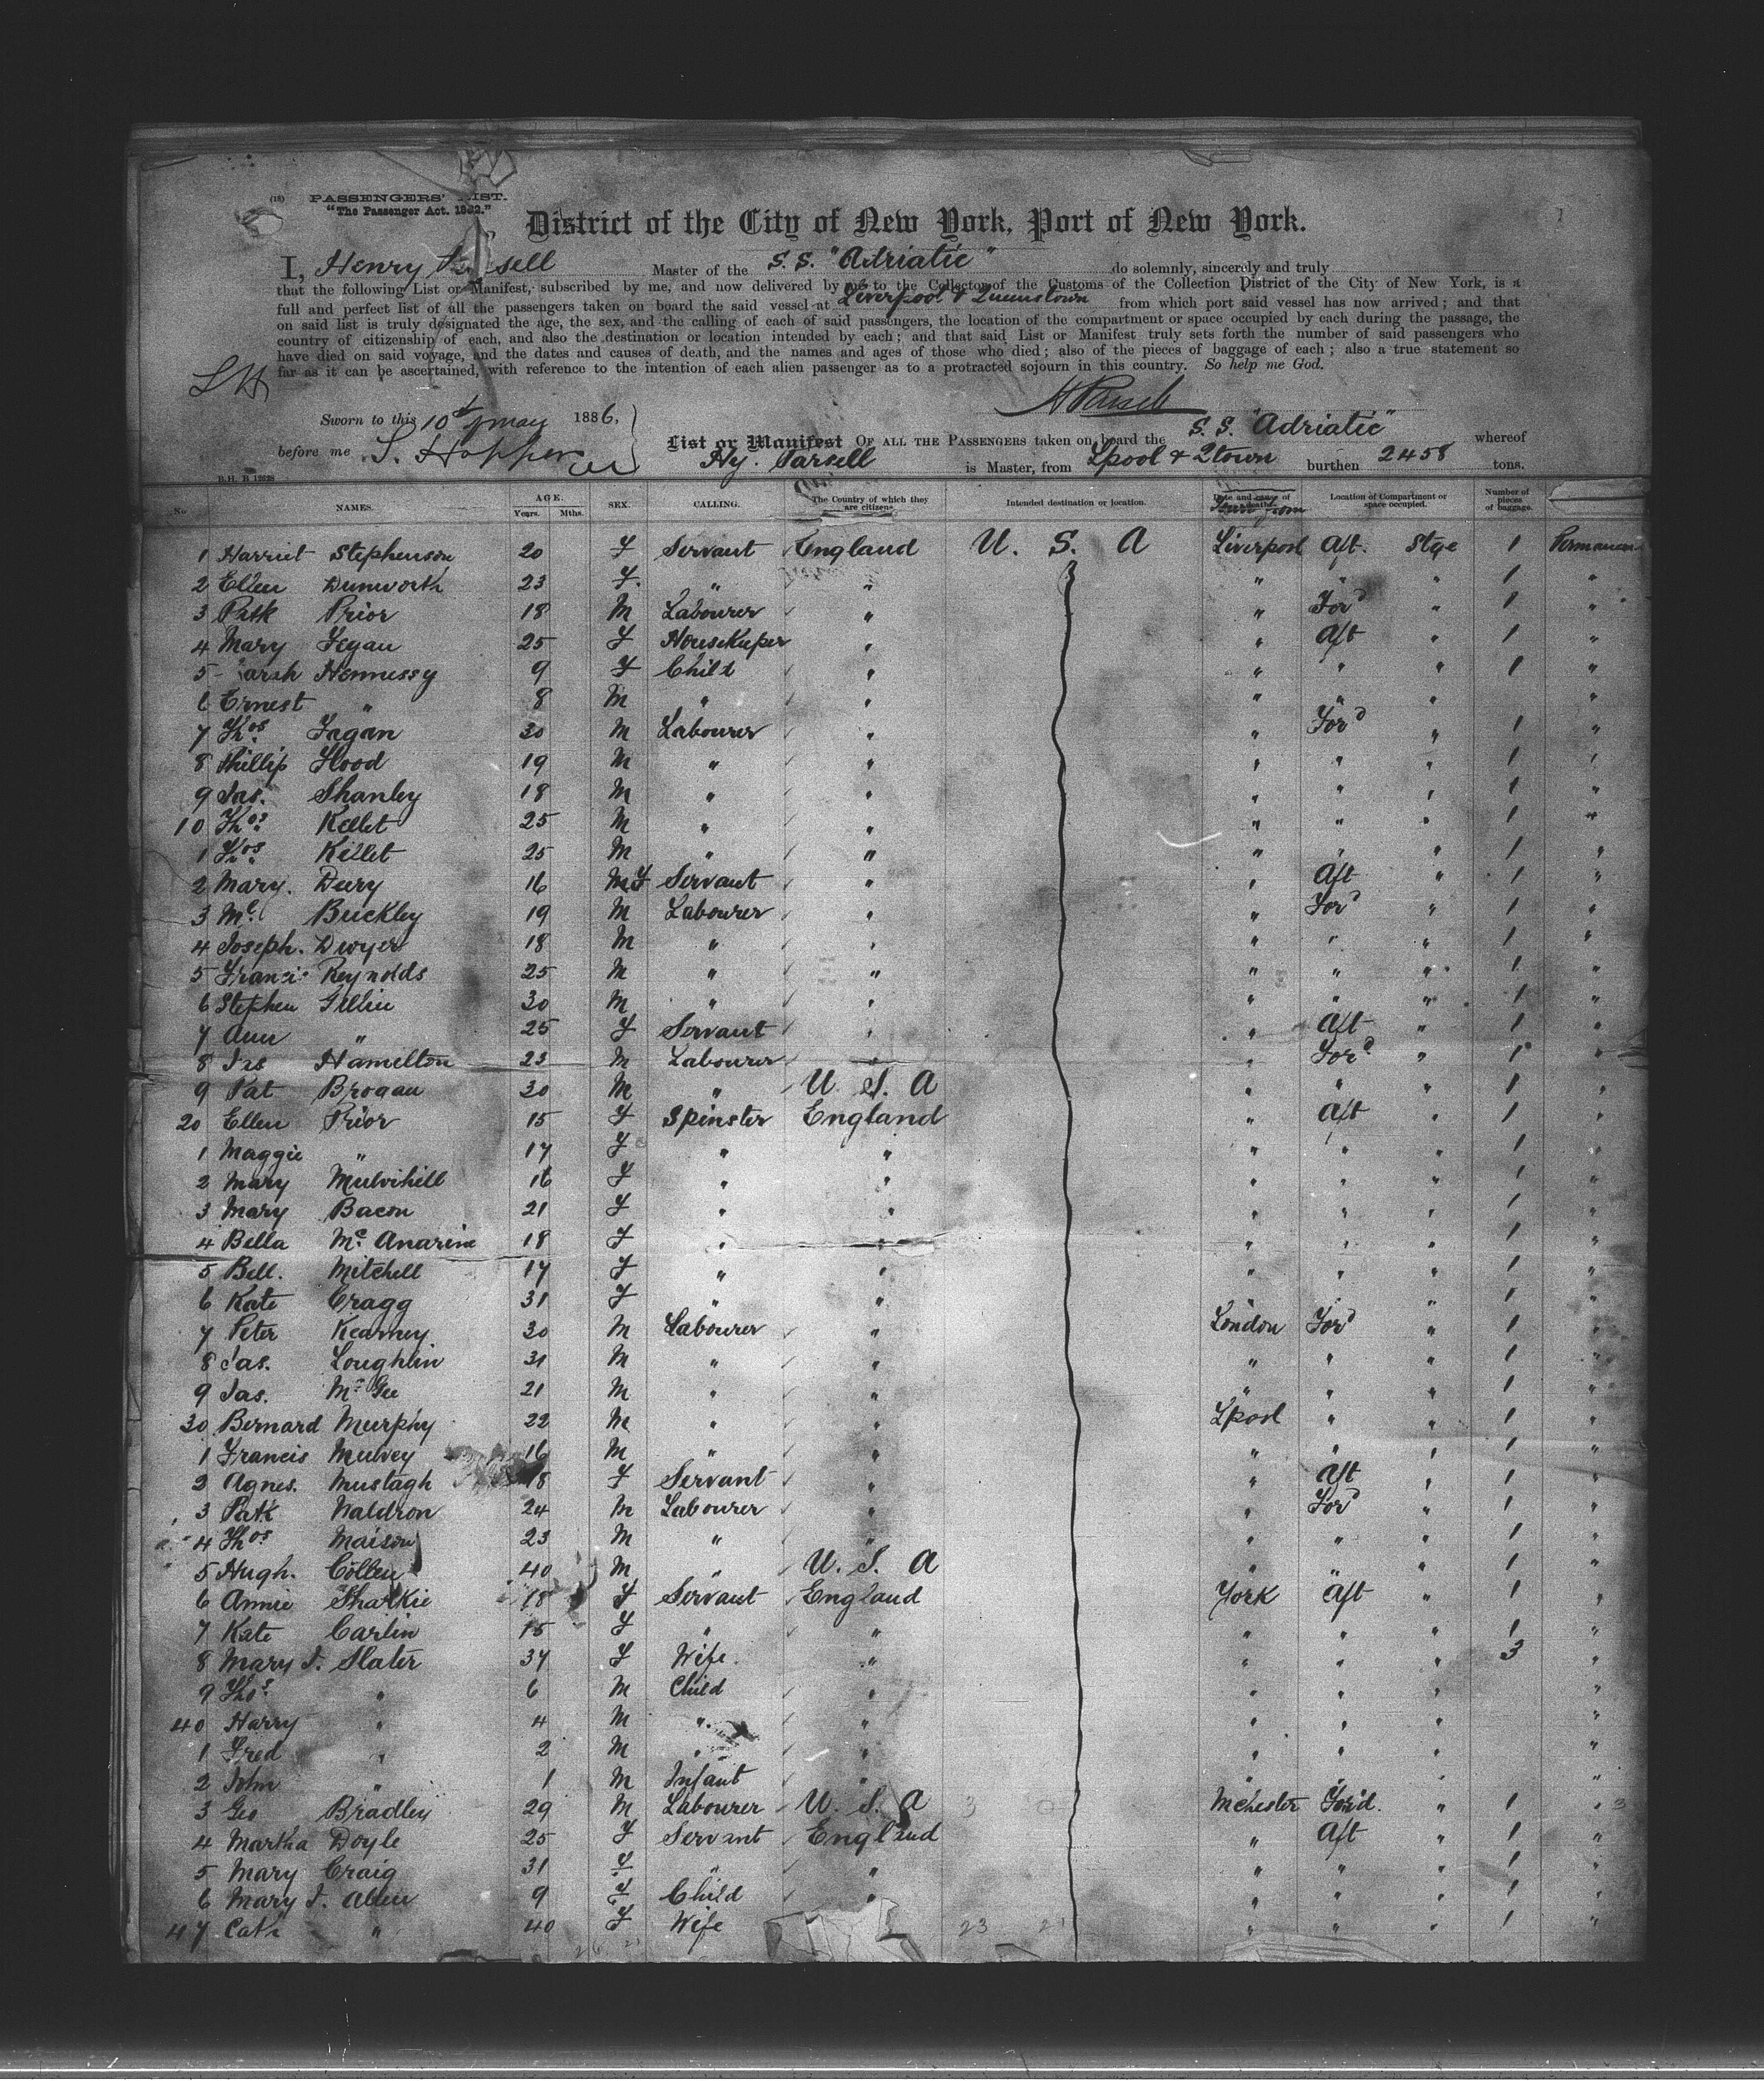 (18) PASSENGERS' LIST.
"The Passenger Act. 1882."
District of the City of New York, Port of New York.
I, Henry Parsell Master of the S. S. "Adriatic" do solemnly, sincerely and truly
that the following List or Manifest, subscribed by me, and now delivered by me to the Collector of the Customs of the Collection District of the City of New York, is a
full and perfect list of all the passengers taken on board the said vessel at Liverpool & Queenstown from which port said vessel has now arrived; and that
on said list is truly designated the age, the sex, and the calling of each of said passengers, the location of the compartment or space occupied by each during the passage, the
country of citizenship of each, and also the destination or location intended by each; and that said List or Manifest truly sets forth the number of said passengers who
have died on said voyage, and the dates and causes of death, and the names and ages of those who died; also of the pieces of baggage of each; also a true statement so
far as it can be ascertained, with reference to the intention of each alien passenger as to a protracted sojourn in this country. So help me God.
H Parsell
Sworn to this 10th May 1886,
before me S. Hopper
List or Manifest OF ALL THE PASSENGERS taken on board the S. S. "Adriatic" whereof
Hy. Parsell is Master, from Lpool & Qtown burthen 2458 tons.
B.H. B 12628
No NAMES. AGE. Years. Mths. SEX. CALLING. The Country of which they are citizens. Intended destination or location. Date and cause of death. from Location of Compartment or space occupied. Number of pieces of baggage.
1 Harriet Stephenson 20 F Servant England U. S. A Liverpool Aft. Stge 1 Permanent
2 Ellen Dunworth 23 F. " " " " " 1 "
3 Patk Prior 18 M Labourer " " Ford " 1 "
4 Mary Fegan 25 F Housekeeper " " Aft " 1 "
5 Hennessy 9 F Child " " " " 1 "
6 Ernest " 8 M " " " " " "
7 Thos Fagan 30 M Labourer " " Ford " 1 "
8 Phillip Flood 19 M " " " " " 1 "
9 Jas. Shanley 18 M " " " " " 1 "
10 Thos Kellet 25 M " " " " " 1 "
1 Thos Kellet 25 M " " " " " 1 "
2 Mary. Dury 16 F Servant " " Aft " 1 "
3 Ml Buckley 19 M Labourer " " Ford " 1 "
4 Joseph. Dwyer 18 M " " " " " 1 "
5 Francis Reynolds 25 M " " " " " 1 "
6 Stephen Gillin 30 M " " " " " 1 "
7 Ann " 25 F Servant " " Aft " 1 "
8 Jas Hamelton 23 M Labourer " " Ford " 1 "
9 Pat Brogan 30 M " U. S. A " " " 1 "
20 Ellen Prior 15 F Spinster England " Aft " 1 "
1 Maggie " 17 F " " " " " 1 "
2 Mary Mulvihill 16 F " " " " " 1 "
3 Mary Bacon 21 F " " " " " 1 "
4 Bella Mc Anarine 18 F " " " " " 1 "
5 Bell. Mitchell 17 F " " " " " 1 "
6 Kate Cragg 31 F " " " " " 1 "
7 Peter Kearney 30 M Labourer " London Ford " 1 "
8 Jas. Loughlin 31 M " " " " " 1 "
9 Jas. Mc Gee 21 M " " " " " 1 "
30 Bernard Murphy 22 M " " Lpool " " 1 "
1 Francis Mulvey 16 M " " " " " 1 "
2 Agnes. Mustagh 18 F Servant " " Aft " 1 "
3 Patk Naldron 24 M Labourer " " Ford " 1 "
4 Thos Maison 23 M " " " " " 1 "
5 Hugh. Collen 40 M " U. S. A " " " 1 "
6 Annie Sharkie 18 F Servant England York Aft " 1 "
7 Kate Carlin 15 F " " " " " 1 "
8 Mary J. Slater 34 F Wife. " " " " 3 "
9 Thos " 6 M Child " " " " "
40 Harry " 4 M " " " " " "
1 Fred " 2 M " " " " " "
2 John " 1 M Infant " " " " "
3 Geo Bradley 29 M Labourer U. S. A Mchester Ford. " 1 "
4 Martha Doyle 25 F Servant England " Aft " 1 "
5 Mary Craig 31 F " " " " " 1 "
6 Mary J. Allen 9 F Child " " " " 1 "
47 Cath " 40 F Wife " " " 1 "